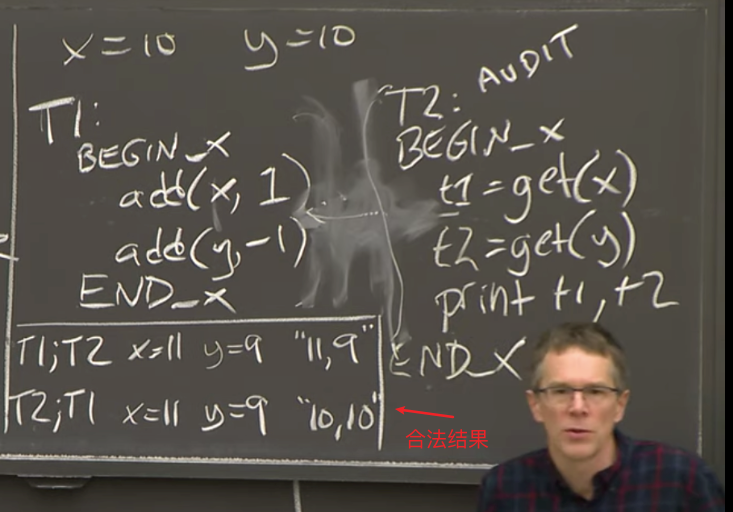 x=10 y=10
T1:
BEGIN_X
add(x, 1)
add(y,-1)
END_X
T2: AUDIT
BEGIN_X
t1=get(x)
t2=get(y)
print t1,t2
END_X
T1;T2 x=11 y=9 "11,9"
T2;T1 x=11 y=9 "10,10"
合法结果